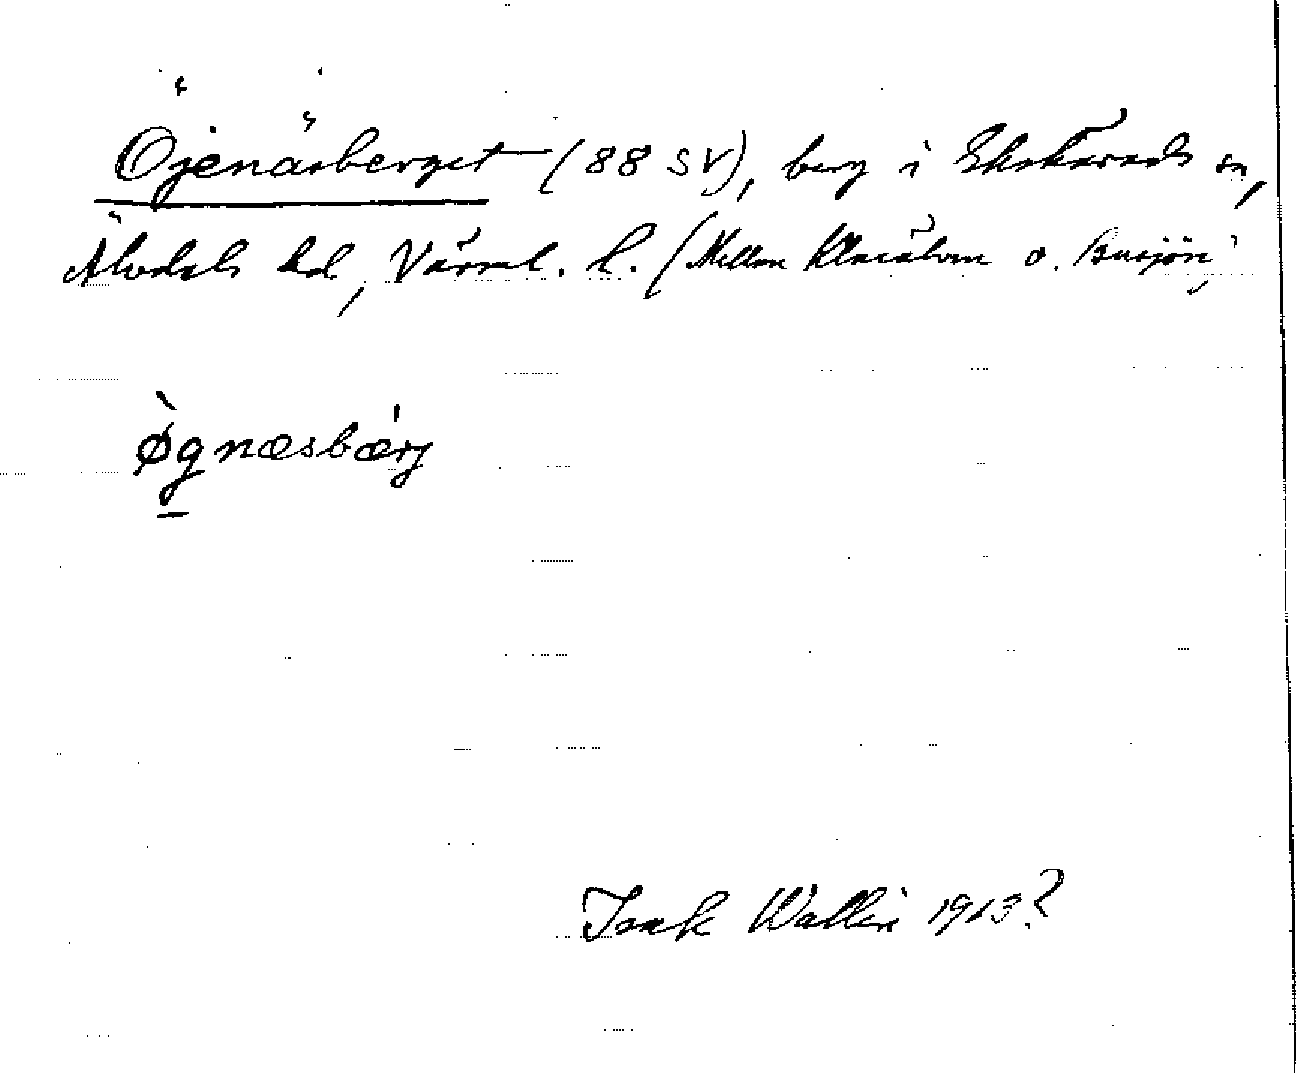 Öjenäsberget (88 SV), berg i Ekshärads sn,
Älvdals hd, Värml. l. (Mellan Klarälven o. Busjön)
Øgnæsbærj
Isak Wallin 1913?